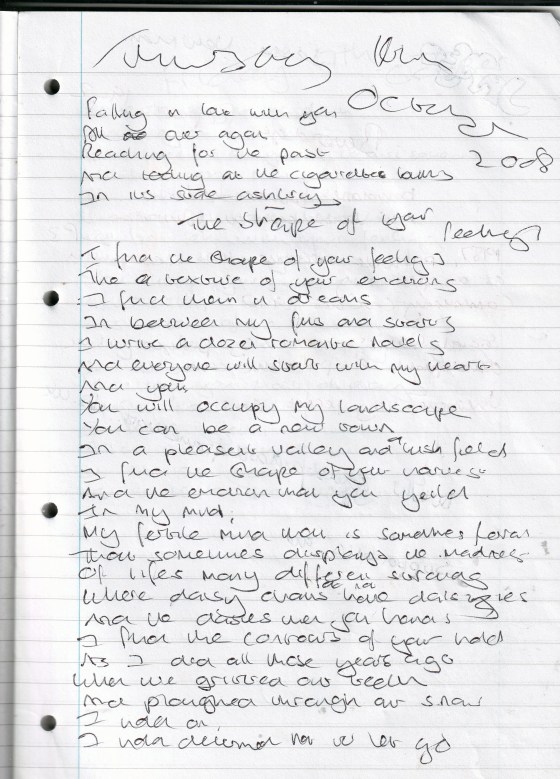 Thursday
October
2008
Falling in love with you
All over again
Reaching for the past
And looking at the cigarettes
In its ashtrays
The shape of your feelings
I find the shape of your feelings
The texture of your emotions
I find them in dreams
In between my fits and starts
I write a dozen romantic novels
And everyone will start with my heart
And you,
You will occupy my landscape
You can be a new town
In a pleasant valley and lush field
I find the shape of your harvest
And the emotion that you yeild
In my mind,
My fertile mind that is sometimes
That sometimes displays the madness
Of lifes many different
Where daisy chains have daisys
And the daisies your hands
I find the contours of your hold
As I did all those years ago
When we gritted our teeth
And ploughed through our snow
I hold on,
I hold determined not to let go